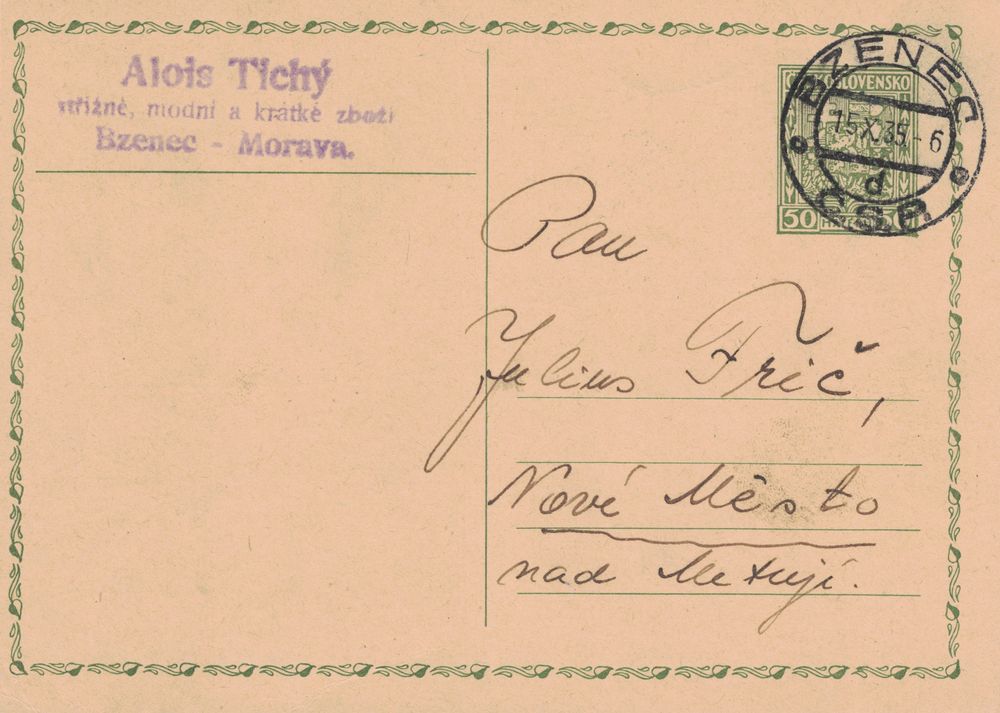 Alois Tichý
střižné, módní a krátké zboží
Bzenec - Morava.
ČESKOSLOVENSKO
50 50
BZENEC
15.X.35.-6
d
ČSR
Pan
Julius Frič,
Nové Město
nad Metují.